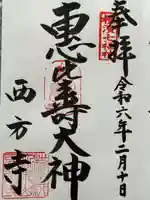 奉拝
令和六年二月十日
恵比寿大神
西方寺